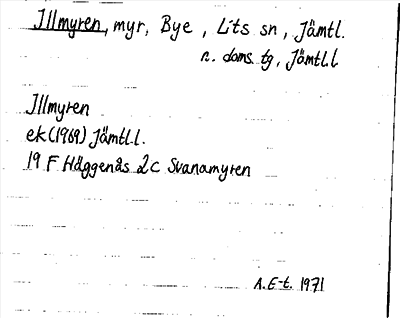 Illmyren, myr, Bye, Lits sn, Jämtl.
n. doms. tg, Jämtl.l
Illmyren
ek (1969) Jämtl.l.
19 F Häggenås 2c Svanamyren
A. E-t. 1971